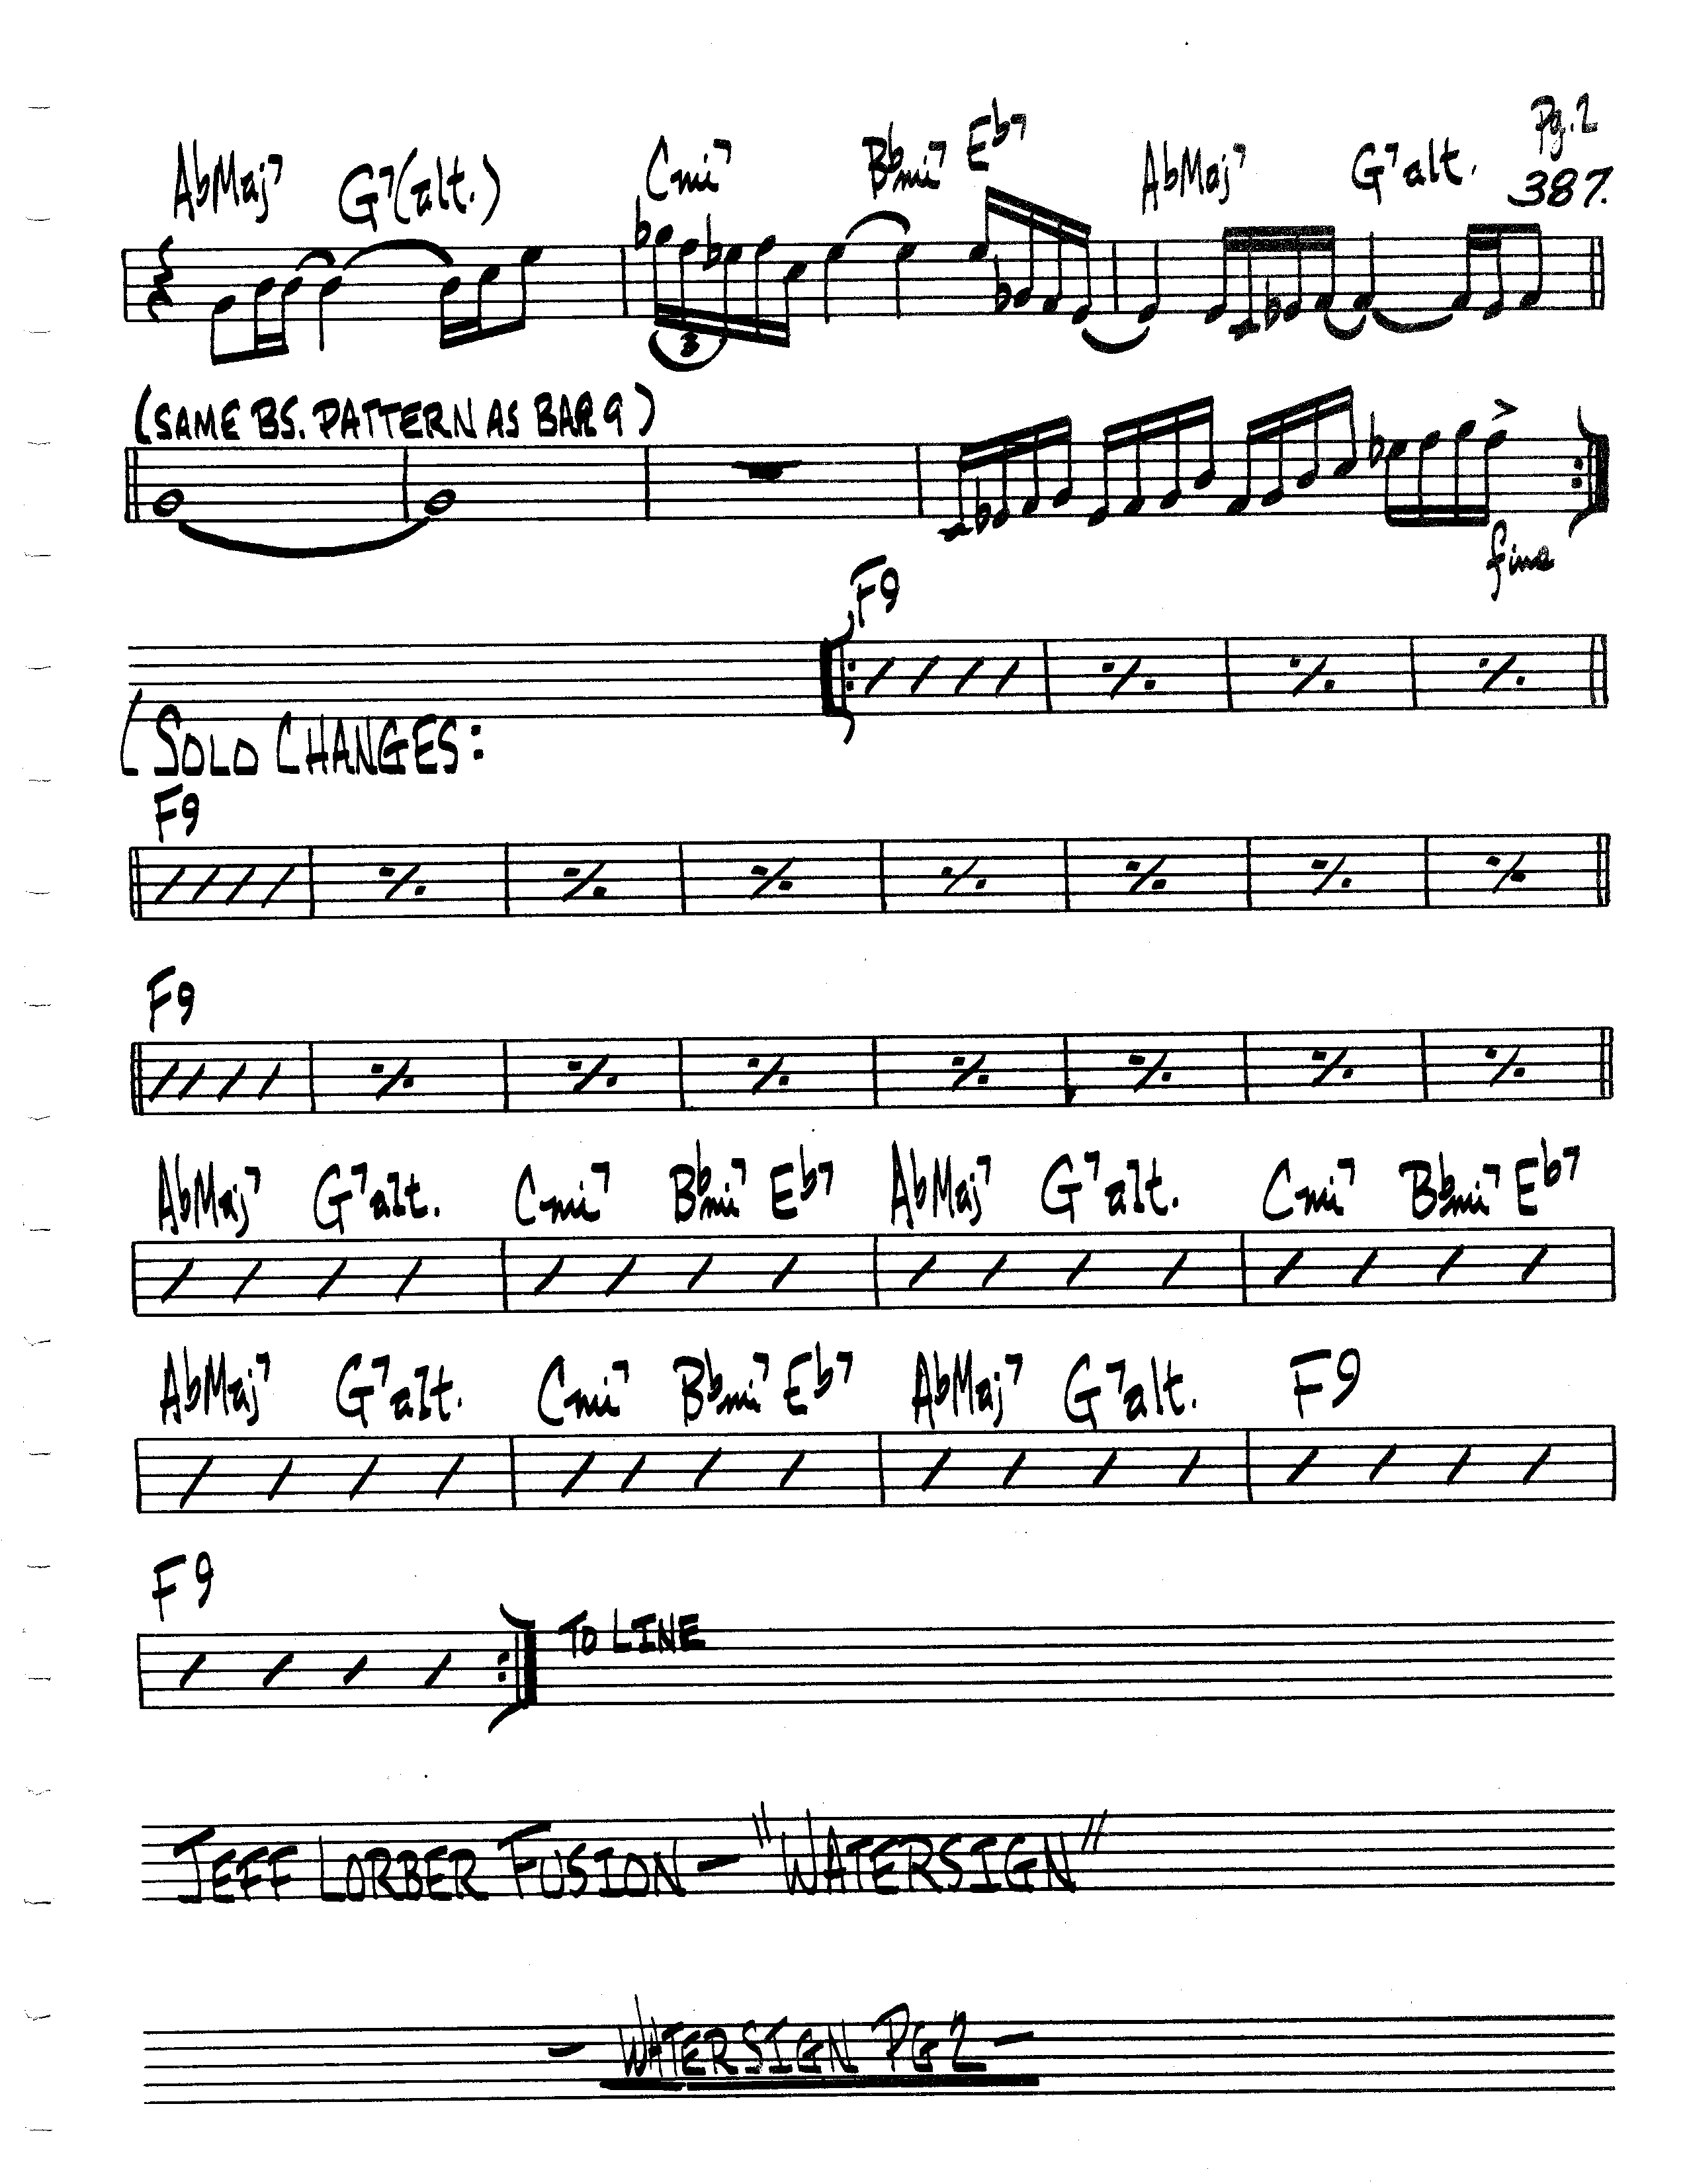 Pg.2
387.
AbMaj7 G7(alt.) Cmi7 Bbmi7 Eb7 AbMaj7 G7alt.
3
(SAME BS. PATTERN AS BAR 9)
fine
F9
(SOLO CHANGES:
F9
F9
AbMaj7 G7alt. Cmi7 Bbmi7 Eb7 AbMaj7 G7alt. Cmi7 Bbmi7 Eb7
AbMaj7 G7alt. Cmi7 Bbmi7 Eb7 AbMaj7 G7alt. F9
F9
TO LINE
JEFF LORBER FUSION – "WATERSIGN"
– WATERSIGN PG 2 –